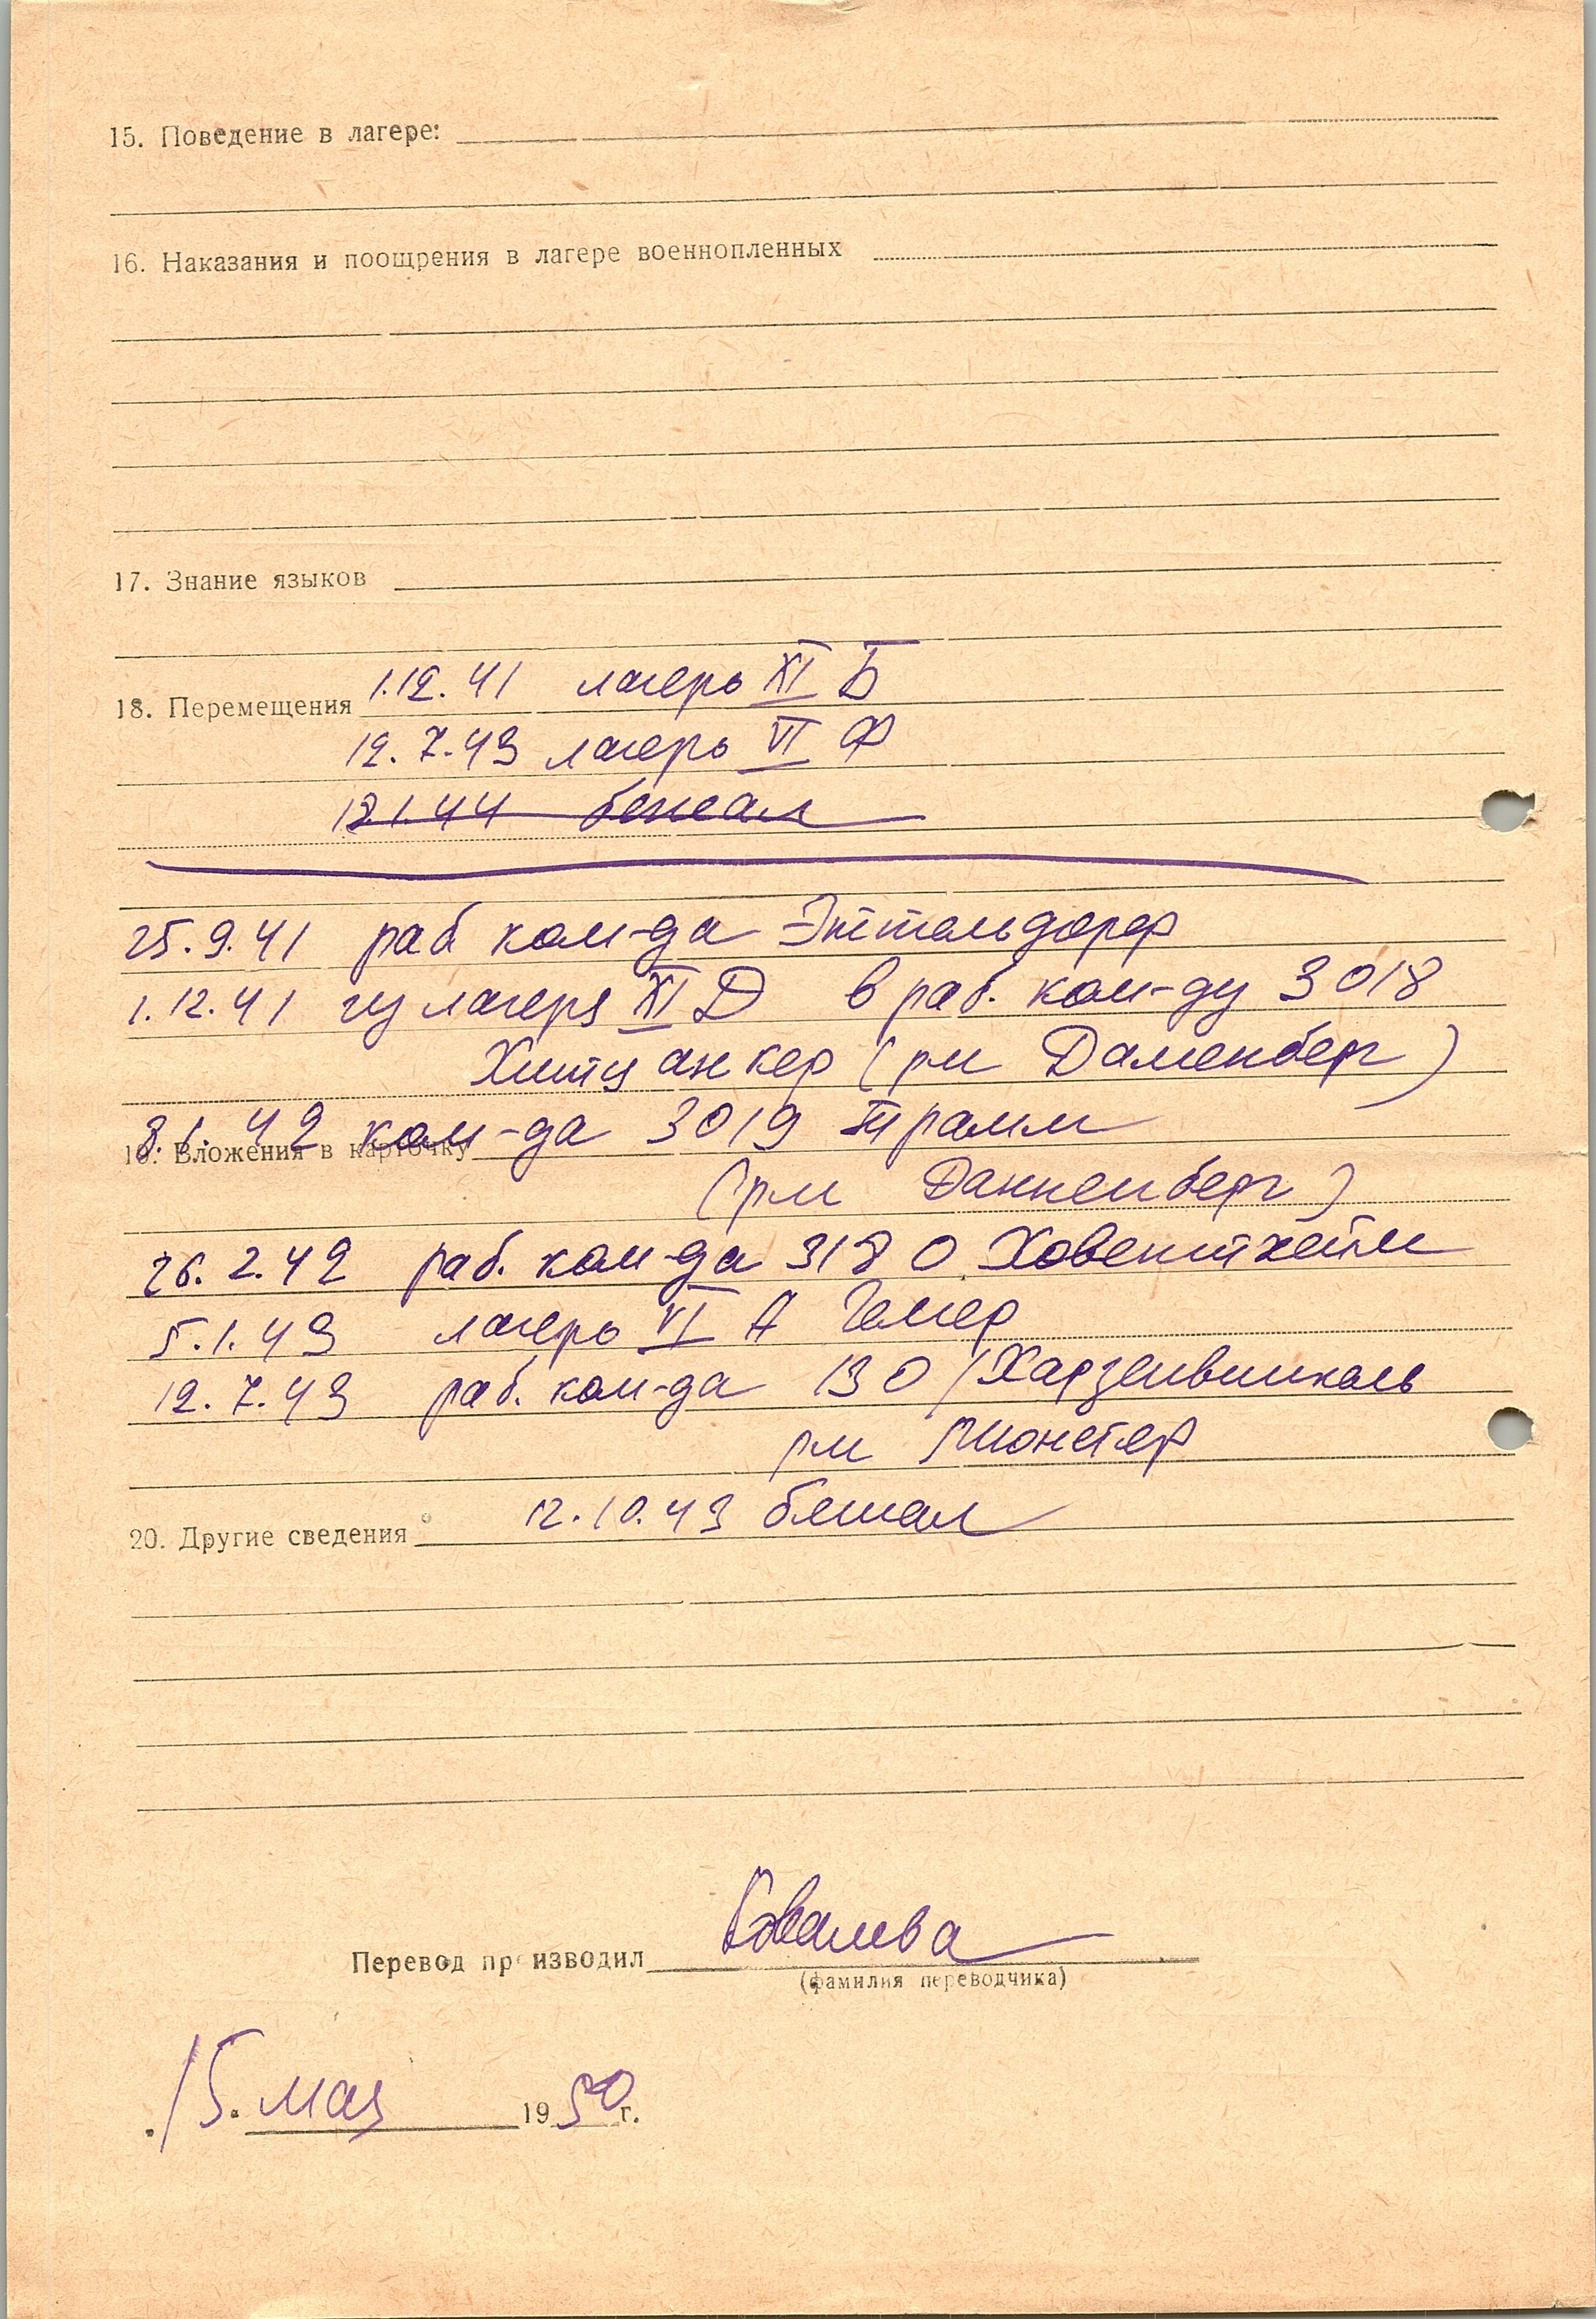 15. Поведение в лагере:
16. Наказания и поощрения в лагере военнопленных
17. Знание языков
18. Перемещения 1.12.41 лагерь XI Б
12.7.43 лагерь VI Ф
12.1.44 бежал
25.9.41 раб ком-да Эттельдорф
1.12.41 из лагеря XI Д в раб. ком-ду 3018
Хитцанкер (рм Даменберг)
8.1.42 ком-да 3019 Трамм
19. Вложения в карточку
(рм Данненберг)
26.2.42 раб. ком-да 3180 Ховенштейм
5.1.43 лагерь VI А Гемер
12.7.43 раб. ком-да 130 / Харзевинкель
рм Мюнстер
20. Другие сведения 12.10.43 бежал
Перевод производил Ковалева
(фамилия переводчика)
15. мая 1950 г.